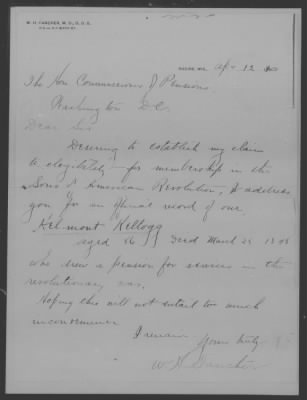 W. H. FANCHER, M. D., D. D. S.
RACINE, WIS. Apr 12
The Hon Commissioner of Pensions
Washington D.C.
Dear Sir
Desiring to establish my claim
to elegibility for membership in the
Sons of American Revolution, I address
you for an official record of one
Helmont Kellogg
aged 86 } died March 25
who drew a pension for services in the
revolutionary war.
Hoping this will not entail too much
inconvenience
I remain
Yours truly
W H Fancher